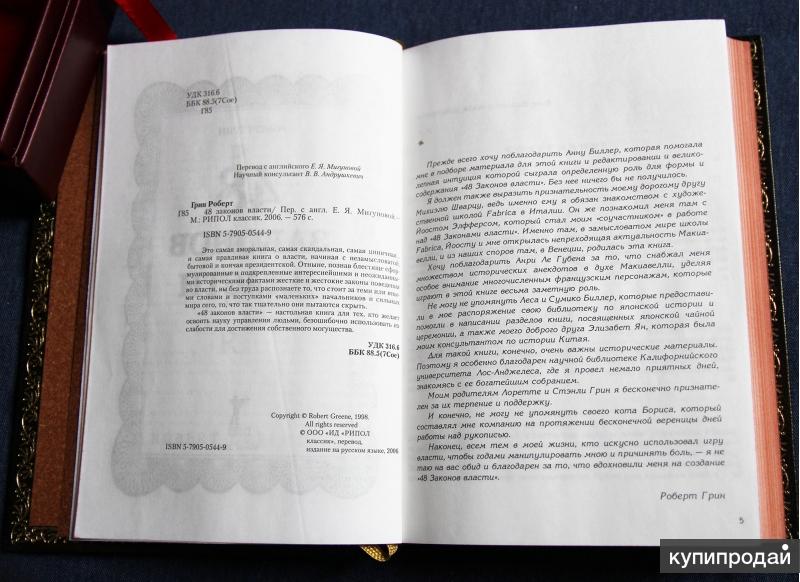 УДК 316.6
ББК 88.5(7Сое)
Г85
Перевод с английского Е. Я. Мигуновой
Научный консультант В. В. Андрушкевич
Грин Роберт
Г85 48 законов власти/ Пер. с англ. Е. Я. Мигуновой. –
М.: РИПОЛ классик, 2006. — 576 с.
ISBN 5-7905-0544-9
Это самая аморальная, самая скандальная, самая циничная
и самая правдивая книга о власти, начиная с незамысловатой
бытовой и кончая президентской. Отныне, познав блестяще сфор-
мулированные и подкрепленные интереснейшими и неожидан-
ными историческими фактами жесткие и жестокие законы поведения
во власти, вы без труда распознаете то, что стоит за теми или ины-
ми словами и поступками «маленьких» начальников и сильных
мира сего, то, что так тщательно они пытаются скрыть.
«48 законов власти» — настольная книга для тех, кто желает
освоить науку управления людьми, безошибочно использовать их
слабости для достижения собственного могущества.
УДК 316.6
ББК 88.5(7Сое)
Copyright © Robert Greene, 1998.
All rights reserved
© ООО «ИД «РИПОЛ
классик», перевод,
издание на русском языке, 2006
ISBN 5-7905-0544-9
Прежде всего хочу поблагодарить Анну Биллер, которая помогала
мне в подборе материала для этой книги и редактировании и велико-
лепная интуиция которой сыграла определенную роль для формы и
содержания «48 Законов власти». Без нее ничего бы не получилось.
Я должен также выразить признательность моему дорогому другу
Михиэлю Шварцу, ведь именно ему я обязан знакомством с художе-
ственной школой Fabrica в Италии. Он же познакомил меня там с
Йоостом Элфферсом, который стал моим «соучастником» в работе
над «48 Законами власти». Именно там, в замысловатом мире школы
Fabrica, Йоосту и мне открылась непреходящая актуальность Макиа-
велли, и из наших споров там, в Венеции, родилась эта книга.
Хочу поблагодарить Анри Ле Губена за то, что снабжал меня
множеством исторических анекдотов в духе Макиавелли, уделяя
особое внимание многочисленным французским персонажам, которые
играют в этой книге весьма заметную роль.
Не могу не упомянуть Леса и Сумико Биллер, которые предостави-
ли в мое распоряжение свою библиотеку по японской истории и
помогли в написании разделов книги, посвященных японской чайной
церемонии, а также моего доброго друга Элизабет Ян, которая была
моим консультантом по истории Китая.
Для такой книги, конечно, очень важны исторические материалы.
Поэтому я особенно благодарен научной библиотеке Калифорнийского
университета Лос-Анджелеса, где я провел немало приятных дней,
знакомясь с ее богатейшим собранием.
Моим родителям Лоретте и Стэнли Грин я бесконечно признате-
лен за их терпение и поддержку.
И конечно, не могу не упомянуть своего кота Бориса, который
составлял мне компанию на протяжении бесконечной вереницы дней
работы над рукописью.
Наконец, всем тем в моей жизни, кто искусно использовал игру
власти, чтобы годами манипулировать мною и причинять боль, — я не
таю на вас обид и благодарен за то, что вдохновили меня на создание
«48 Законов власти».
Роберт Грин
5
купипродай